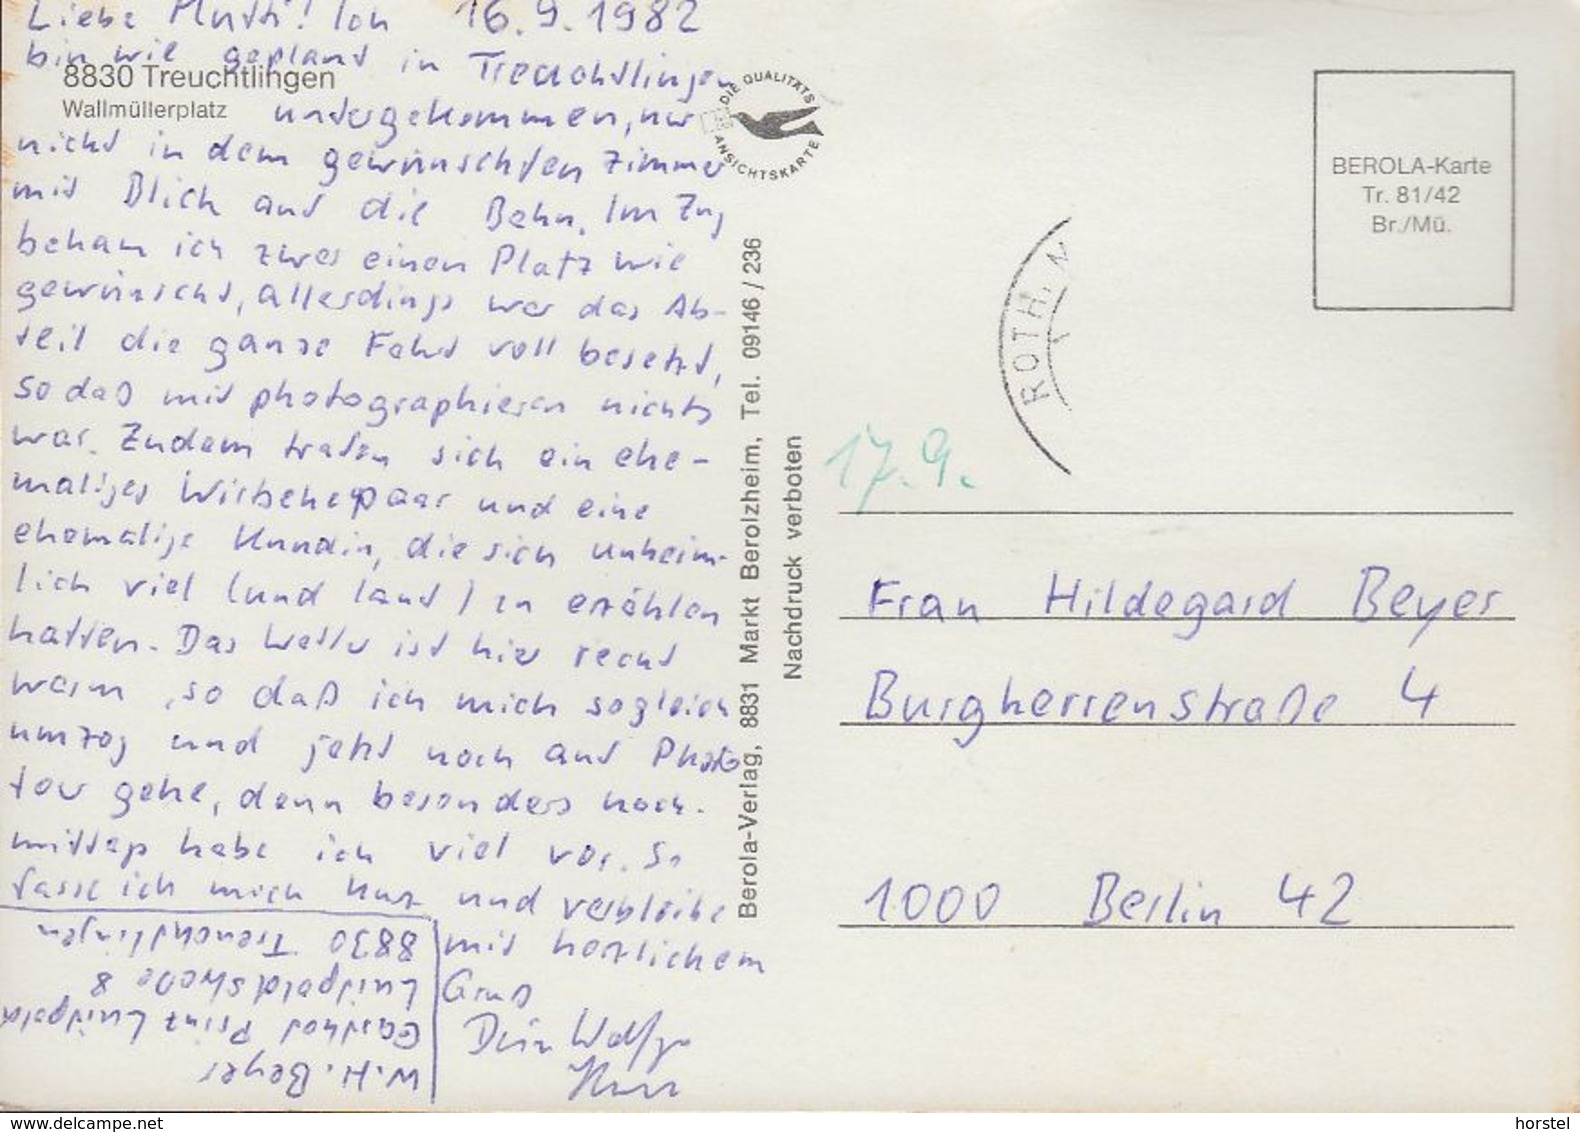 Liebe Mutti! Ich 16.9.1982
bin wie geplant in Treuchtlingen
untergekommen, nur
nicht in dem gewünschten Zimmer
mit Blick auf die Bahn. Im Zug
bekam ich zwar einen Platz wie
gewünscht, allerdings war das Ab-
teil die ganze Fahrt voll besetzt,
so daß mit photographieren nichts
war. Zudem trafen sich ein ehe-
maliges Wirtsehepaar und eine
ehemalige Kundin, die sich unheim-
lich viel (und laut) zu erzählen
hatten. Das Wetter ist hier recht
warm, so daß ich mich sogleich
umzog und jetzt noch auf Photo
tour gehe, denn besonders nach-
mittags habe ich viel vor. So
fasse ich mich kurz und verbleibe
mit herzlichem
Gruß
Dein Wolfgang
W.H. Beyer
Gasthof Prinz Luitpold
Luitpoldstraße 8
8830 Treuchtlingen
8830 Treuchtlingen
Wallmüllerplatz
DIE QUALITÄTS
ANSICHTSKARTE
Berola-Verlag, 8831 Markt Berolzheim, Tel. 09146 / 236
Nachdruck verboten
BEROLA-Karte
Tr. 81/42
Br./Mü.
ROTH,
17.9.
Frau Hildegard Beyer
Burgherrenstraße 4
1000 Berlin 42
www.delcampe.net
horstel